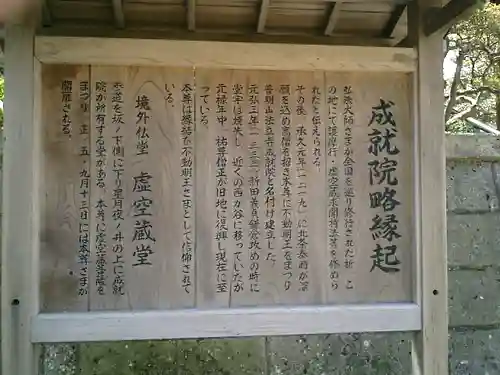 成就院略縁起
弘法大師さまが全国を巡り修行された折、こ
の地にて護摩行・虚空蔵求聞持法等を修めら
れたと伝えられる
その後、承久元年(一二一九)に北条泰時が深
願を込め高僧を招き本尊に不動明王をまつり
普明山法立寺成就院と名付け建立した。
元弘三年(一三三三)新田義貞鎌倉攻めの時に
堂宇は焼失し、近くの西が谷に移っていたが
元禄年中、祐尊僧正が旧地に復興し現在に至
っている。
本尊は縁結び不動明王さまとして信仰されて
いる。
境外仏堂 虚空蔵堂
参道を坂ノ下側に下り星月夜ノ井の上に成就
院が所有する堂がある。本尊に虚空蔵菩薩を
まつり、正、五、九月十三日には本尊さまが
開扉される。